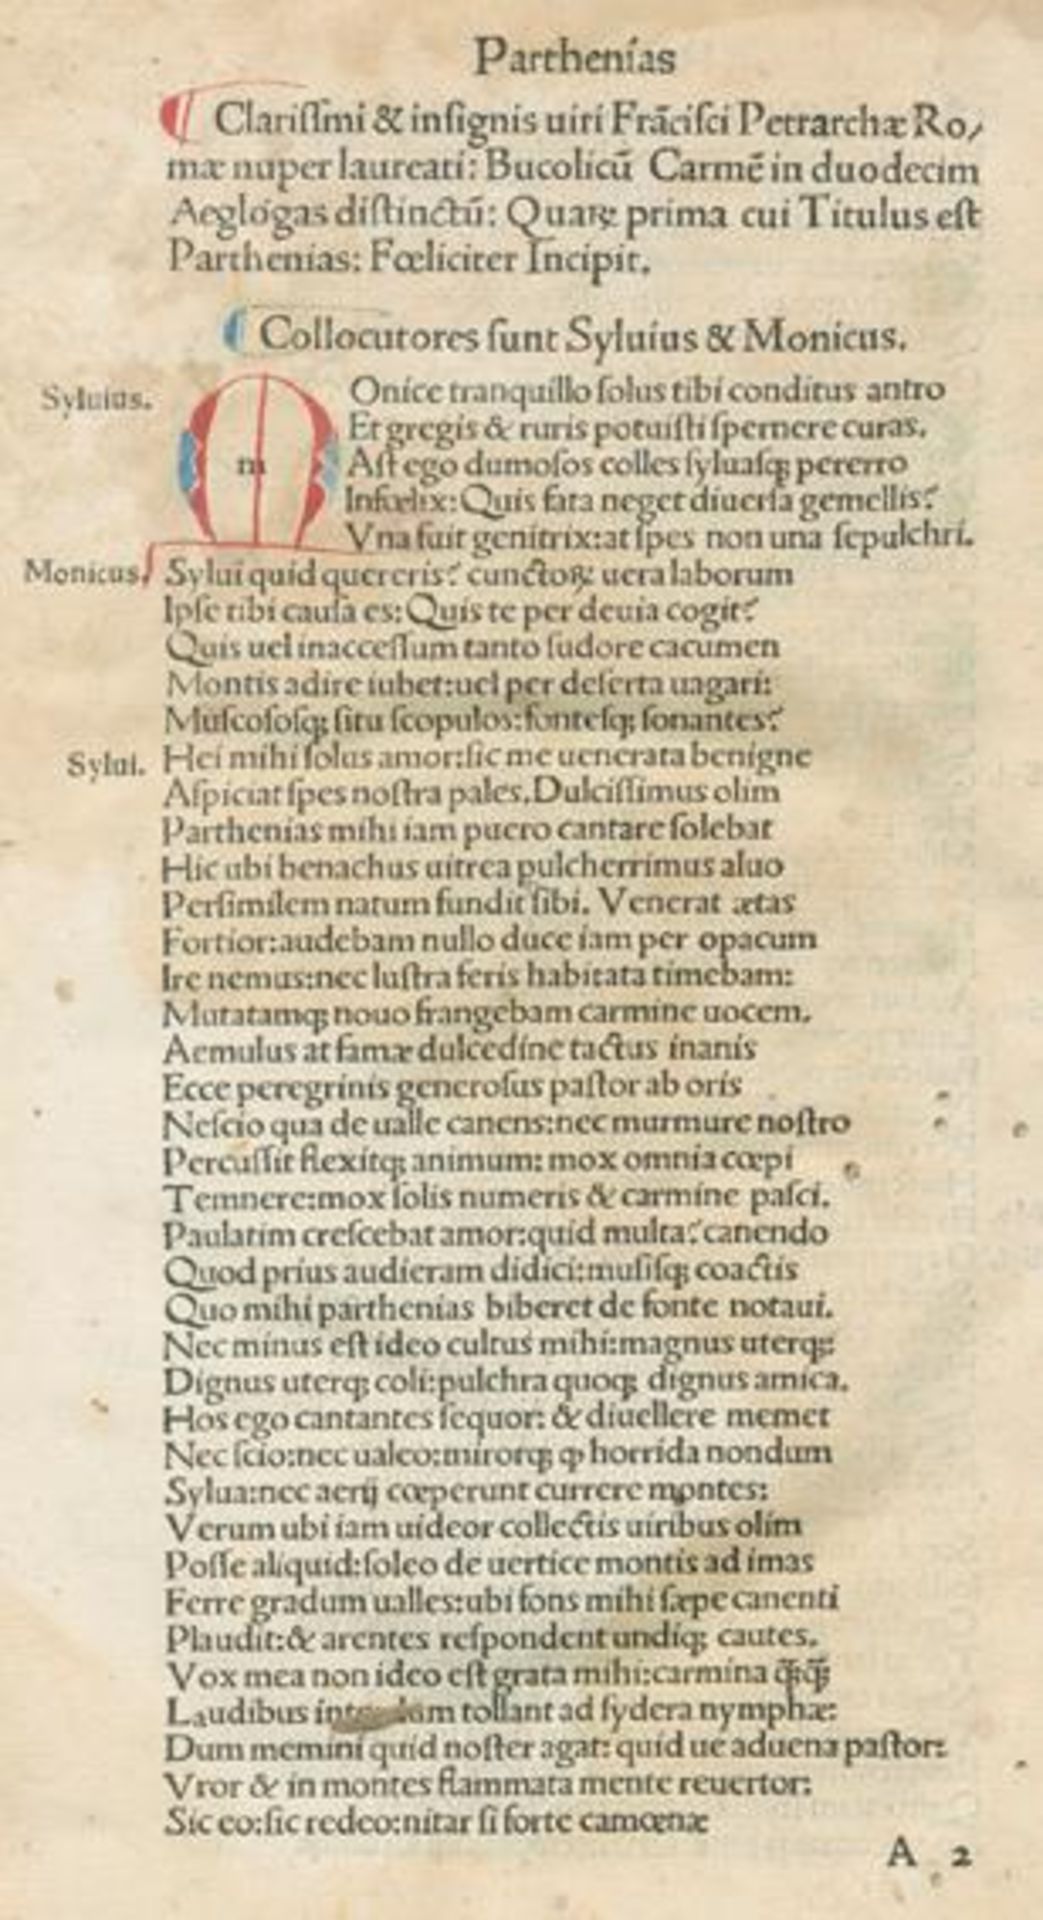 Parthenias
¶ Clarissimi & insignis uiri Frãcisci Petrarchæ Ro/
mæ nuper laureati: Bucolicũ Carmẽ in duodecim
Aeglogas distinctũ: Quaꝝ prima cui Titulus est
Parthenias: Fœliciter Incipit.
¶ Collocutores sunt Syluius & Monicus.
Syluius. M Onice tranquillo solus tibi conditus antro
Et gregis & ruris potuisti spernere curas.
m Ast ego dumosos colles syluasqꝫ pererro
Infœlix: Quis fata neget diuersa gemellis?
Vna fuit genitrix: at spes non una sepulchri.
Monicus. Sylui quid quereris? cunctoꝝ uera laborum
Ipse tibi causa es: Quis te per deuia cogit?
Quis uel inaccessum tanto sudore cacumen
Montis adire iubet: uel per deserta uagari:
Muscososqꝫ situ scopulos: fontesqꝫ sonantes?
Sylui. Hei mihi solus amor: sic me uenerata benigne
Aspiciat spes nostra pales. Dulcissimus olim
Parthenias mihi iam puero cantare solebat
Hic ubi benachus uitrea pulcherrimus aluo
Persimilem natum fundit sibi. Venerat ætas
Fortior: audebam nullo duce iam per opacum
Ire nemus: nec lustra feris habitata timebam:
Mutatamqꝫ nouo frangebam carmine uocem.
Aemulus at famæ dulcedine tactus inanis
Ecce peregrinis generosus pastor ab oris
Nescio qua de ualle canens: nec murmure nostro
Percussit flexitqꝫ animum: mox omnia cœpi
Temnere: mox solis numeris & carmine pasci.
Paulatim crescebat amor: quid multa? canendo
Quod prius audieram didici: musisqꝫ coactis
Quo mihi parthenias biberet de fonte notaui.
Nec minus est ideo cultus mihi: magnus uterqꝫ:
Dignus uterqꝫ coli: pulchra quoqꝫ dignus amica.
Hos ego cantantes sequor: & diuellere memet
Nec scio: nec ualeo: mirorqꝫ ꝙ horrida nondum
Sylua: nec aerij cœperunt currere montes:
Verum ubi iam uideor collectis uiribus olim
Posse aliquid: soleo de uertice montis ad imas
Ferre gradum ualles: ubi fons mihi sæpe canenti
Plaudit: & arentes respondent undiqꝫ cautes.
Vox mea non ideo est grata mihi: carmina q̃q̃
Laudibus tollant ad sydera nymphæ:
Dum memini quid noster agat: quid ue aduena pastor:
Vror & in montes flammata mente reuertor:
Sic eo: sic redeo: nitar si forte camœnæ
A 2